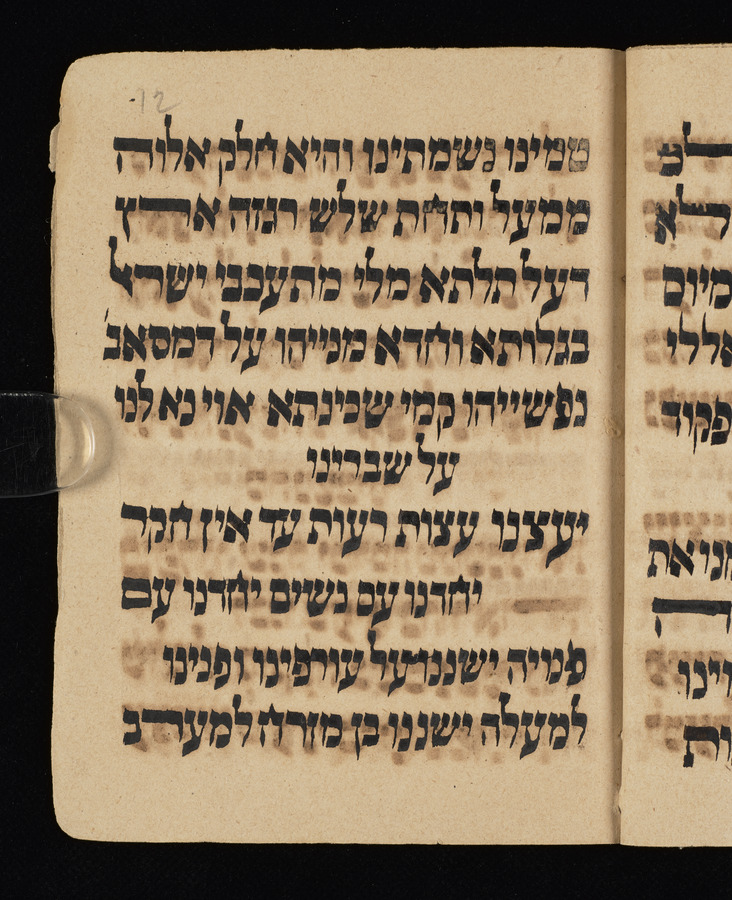 12
טמינו נשמתינו והיא חלק אלוה
ממעל ותחת שלש רגזה ארץ
דעל תלתא מלי מתעכבי ישראל
בגלותא וחדא מנייהו על דמסאב
נפשייהו קמי שכינתא אוי נא לנו
על שברינו
יעצנו עצות רעות עד אין חקר
יחדנו עם נשים יחדנו עם
פנויה ישננו על עורפינו ופנינו
למעלה ישננו בן מזרח למערב